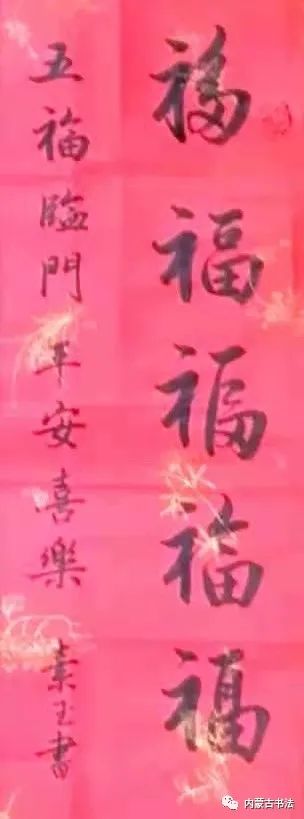 福福福福福
五福臨門 平安喜樂 素玉書
内蒙古书法